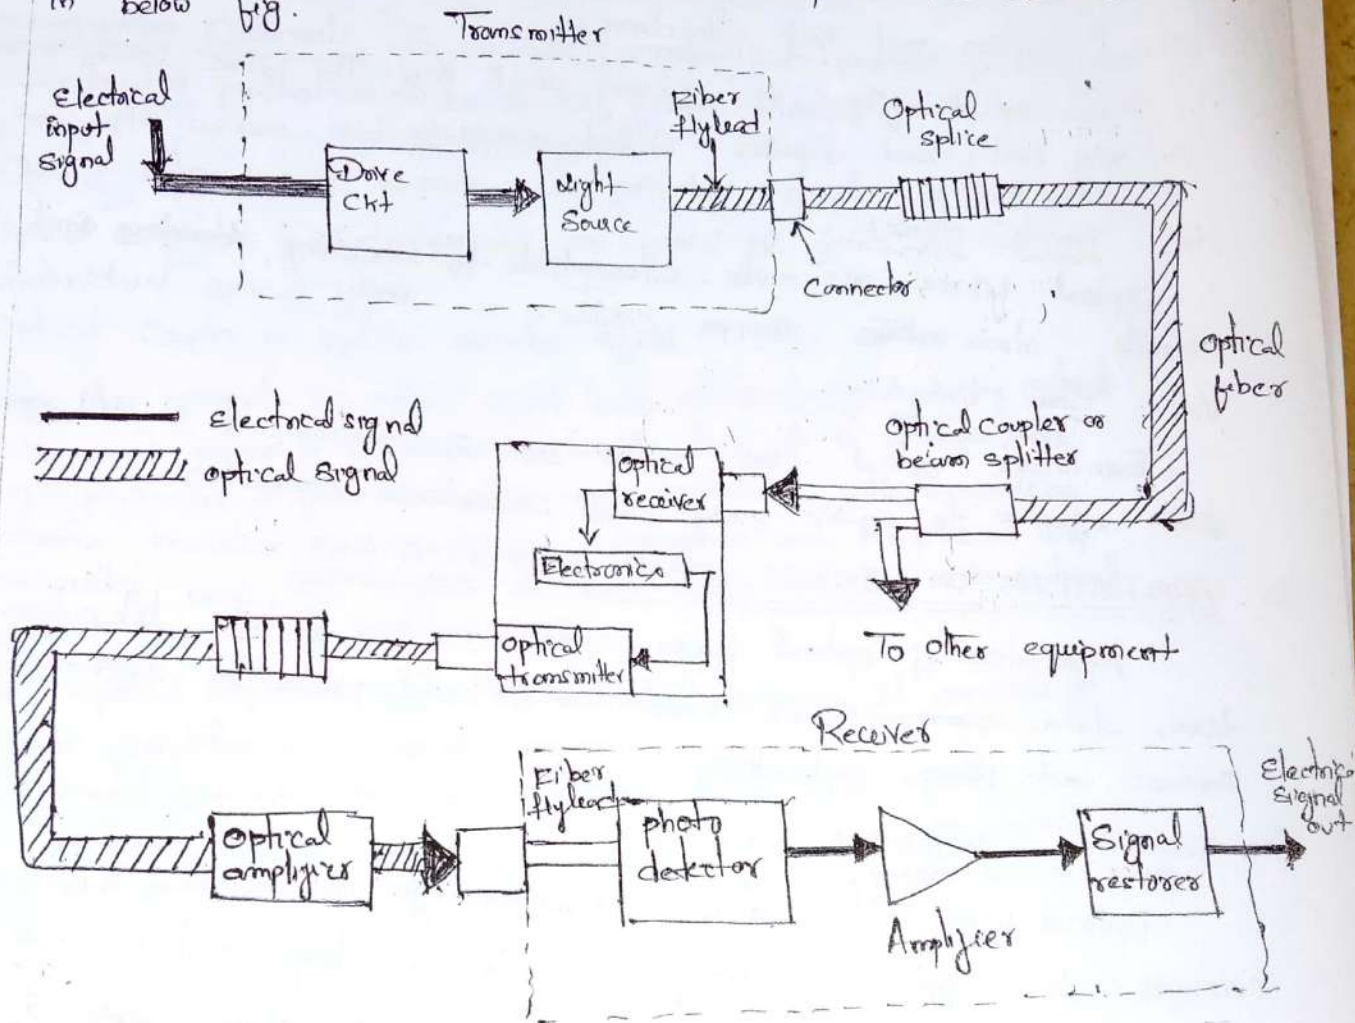 in below fig.
Transmitter
Electrical
input
Signal
Drive
Ckt
Light
Source
Fiber
flylead
Optical
splice
Connector
Optical
fiber
Electrical signal
optical signal
Optical coupler or
beam splitter
optical
receiver
Electronics
optical
transmitter
To other equipment
Receiver
Fiber
flylead
Optical
amplifier
photo
detector
Amplifier
Signal
restorer
Signal
out